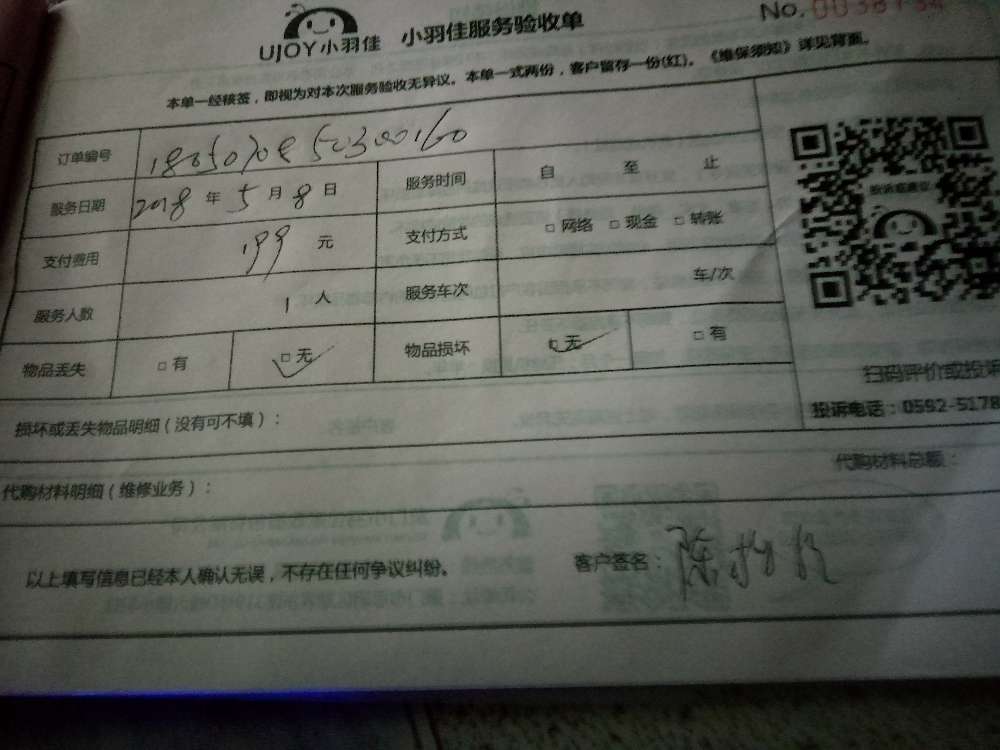 UJOY小羽佳 小羽佳服务验收单 No.
本单一经核签，即视为对本次服务验收无异议。本单一式两份，客户留存一份(红)。《维保须知》详见背面。
订单编号
服务日期 2018 年 5 月 8 日 服务时间 自 至 止
支付费用 199 元 支付方式 □ 网络 □ 现金 □ 转账
服务人数 1 人 服务车次 车/次
物品丢失 □ 有 □ 无 物品损坏 □ 无 □ 有
扫码评价或投诉
损坏或丢失物品明细（没有可不填）： 投诉电话：0592-5178
代购材料明细（维修业务）： 代购材料总额：
以上填写信息已经本人确认无误，不存在任何争议纠纷。 客户签名：陈